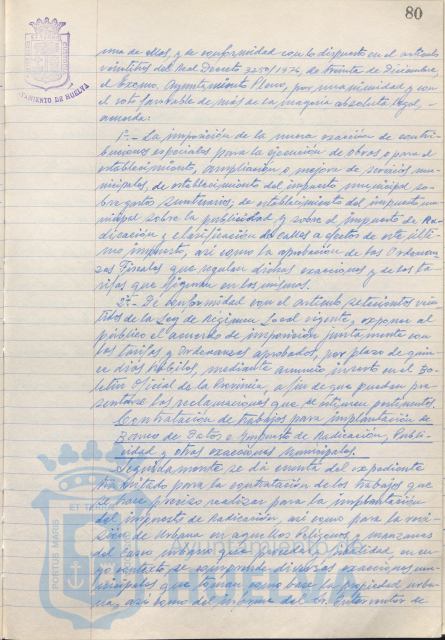 80
AYUNTAMIENTO DE HUELVA
una de ellas, y de conformidad con lo dispuesto en el artículo
veintitrés del Real Decreto 3250/1976, de treinta de Diciembre,
el Excmo. Ayuntamiento Pleno, por unanimidad y con
el voto favorable de más de la mayoría absoluta legal, -
acuerda:
1º.- La imposición de la nueva exacción de contri-
buciones especiales para la ejecución de obras o para el
establecimiento, ampliación o mejora de servicios mu-
nicipales, de establecimiento del impuesto municipal so-
bre gastos suntuarios, de establecimiento del impuesto mu-
nicipal sobre la publicidad, y sobre el impuesto de Ra-
dicación y clasificación de calles a efectos de este últi-
mo impuesto, así como la aprobación de las Ordenan-
zas Fiscales que regulan dichas exacciones y de las ta-
rifas que figuran en las mismas.
2º.- De conformidad con el artículo setecientos vein-
titrés de la Ley de Régimen Local vigente, exponer al
público el acuerdo de imposición juntamente con
las tarifas y Ordenanzas aprobadas, por plazo de quin-
ce días hábiles, mediante anuncio inserto en el Bo-
letín Oficial de la Provincia, a fin de que puedan pre-
sentarse las reclamaciones que se estimen pertinentes.
Contratación de trabajos para implantación de
Banco de Datos e Impuesto de Radicación, Publi-
cidad y otras exacciones municipales.
Seguidamente se dá cuenta del expediente
tramitado para la contratación de los trabajos que
se hace preciso realizar para la implantación
del impuesto de Radicación, así como para la revi-
sión de Urbana en aquellos Polígonos y manzanas
del casco urbano que
go contexto se comprende diversas exacciones mu-
nicipales que toman como base la propiedad urba-
na, así como del informe del Sr. Interventor de
PORTUS MARIS ET TERRAE